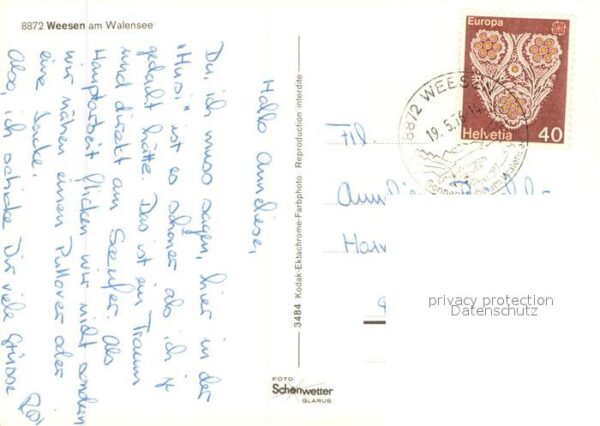 8872 Weesen am Walensee
Hallo Anneliese,
Du, ich muss sagen, hier in der
"Husi" ist es schöner als ich je
gedacht hätte. Das ist ein Traum
und direkt am Seeufer. Als
Hauptarbeit flicken wir nicht sondern
wir nähen einen Pullover oder
eine Jacke.
Also, ich schicke Dir viele Grüsse
3484 Kodak-Ektachrome-Farbphoto Reproduction interdite
FOTO
Schönwetter
GLARUS
Europa
Helvetia 40
8872 WEESEN
19.5.76
Frl.
privacy protection
Datenschutz